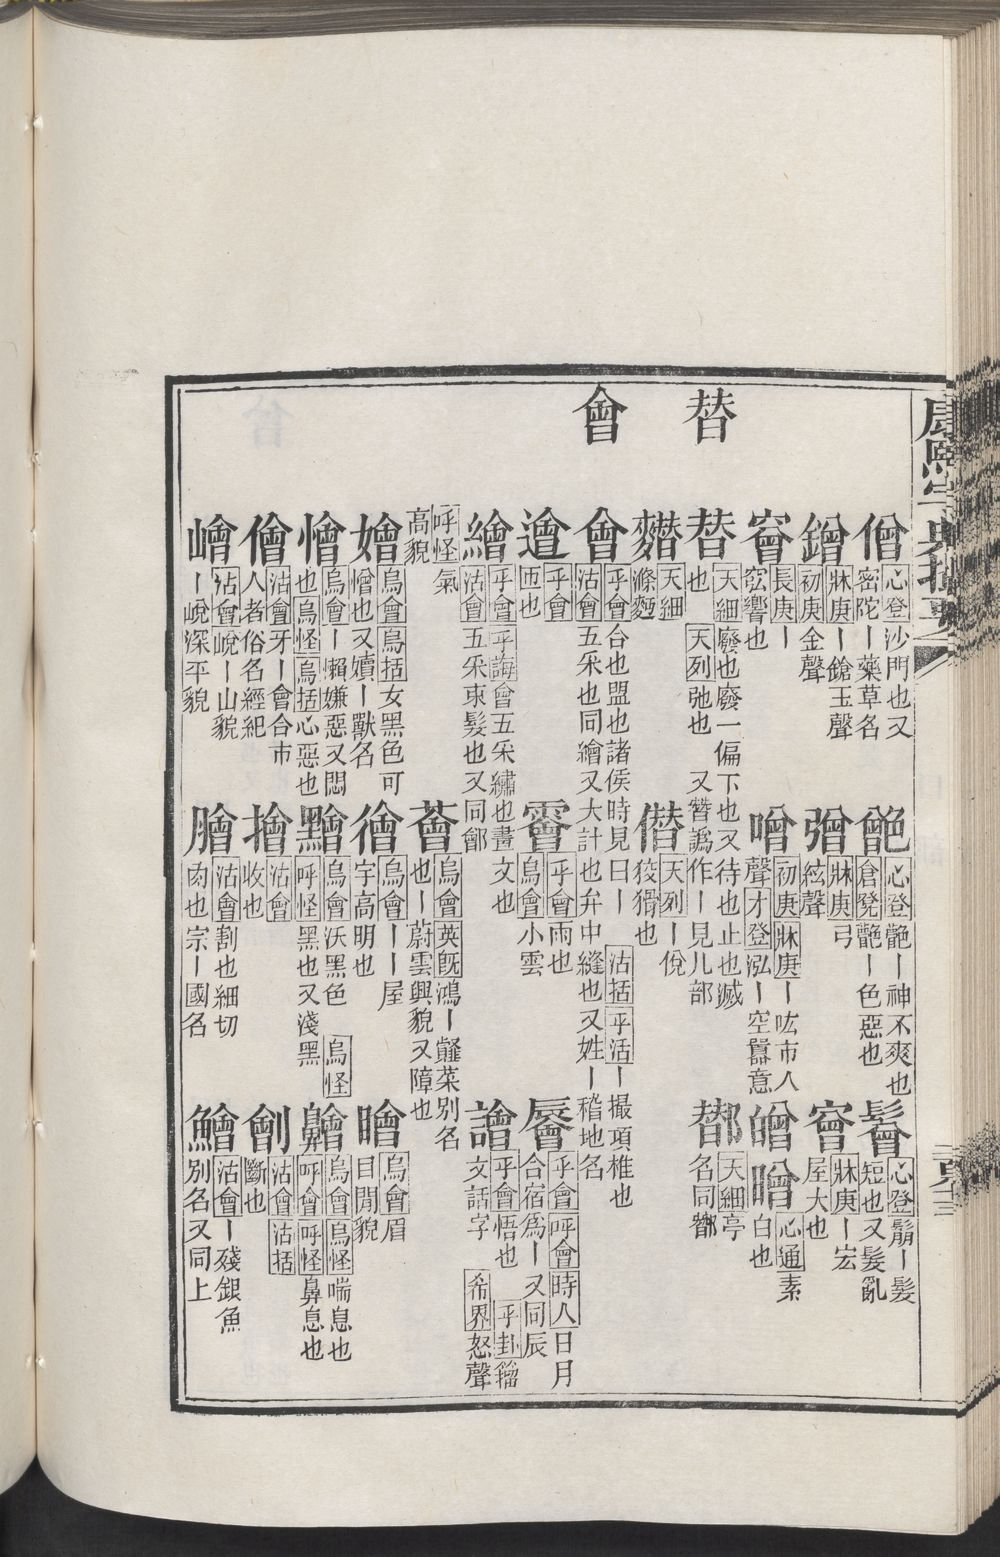 康熙字典撮要
替
會
僧 心登沙門也又密陀丨藥草名
䰝 心登䰝丨神不爽也倉凳䰝丨色惡也
鬙 心登鬅丨髮短也又髮亂
鏳 牀庚丨鎗玉聲初庚金聲
磳 牀庚弓絃聲
牀庚丨宏屋大也
長庚丨宖響也
噌 初庚牀庚丨吰市人聲才登泓丨空嚚意
心通素白也
替 天細廢也廢一偏下也又待也止也滅也天列弛也又朁譌作丨見儿部
天細亭名同鄼
天細滌麵
僣 天列丨侻狡猾也
會 乎會合也盟也諸侯時見曰丨沽括乎活丨撮項椎也沽會五采也同繪又大計也弁中縫也又姓丨稽地名
乎會帀也
乎會雨也烏會小雲
乎會呼會時人日月合宿爲丨又同辰
繪 乎會乎誨會五采繡也畫文也沽會五采束髮也又同鄶
譮 乎會悟也乎卦籀文話字希界怒聲
呼怪氣高貌
薈 烏會英旣鴻丨虌菜別名也丨蔚雲興貌又障也
嬒 烏會烏括女黑色可憎也又嬻丨獸名
烏會丨丨屋宇高明也
烏會眉目閒貌
懀 烏會丨懶嫌惡又悶也烏怪烏括心惡也
黵 烏會沃黑色烏怪呼怪黑也又淺黑
烏會烏怪喘息也呼會呼怪鼻息也
儈 沽會牙丨會合市人者俗名經紀
擓 沽會收也
劊 沽會沽括斷也
嶒 沽會㟋丨山貌丨㟋深平貌
膾 沽會割也細切肉也宗丨國名
鱠 沽會丨殘銀魚別名又同上